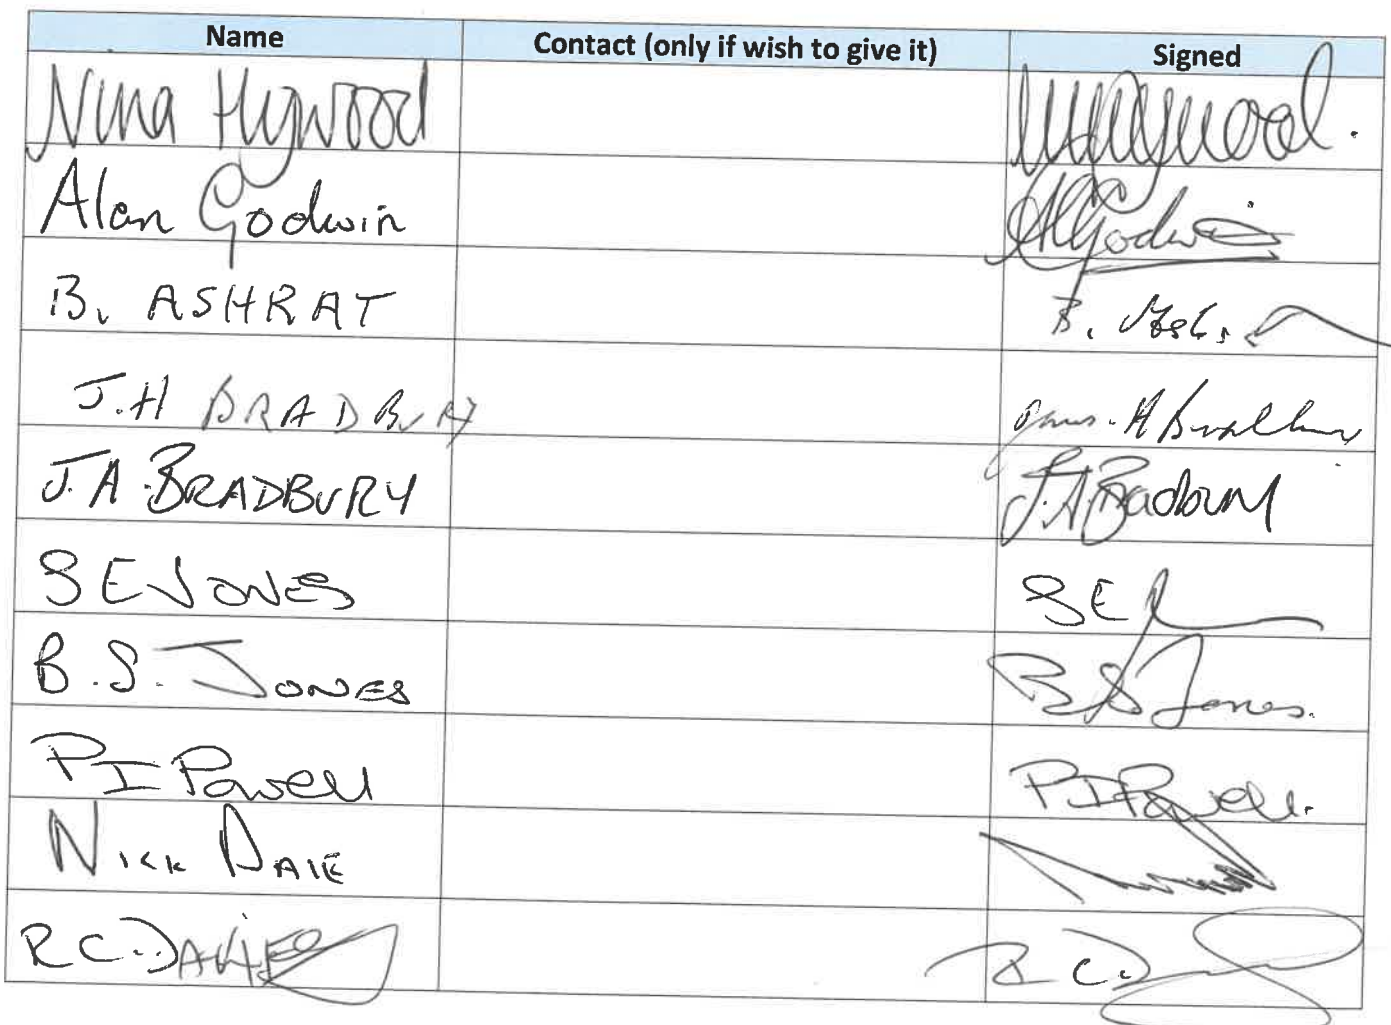 Name Contact (only if wish to give it) Signed
Nina Hywood
Alan Godwin AGodwin
B. ASHRAT B.
J.H BRADBURY
J.A. BRADBURY J.A Bradbury
S E JONES SE
B.S. JONES B S Jones.
P I Powell P I Powell.
NICK DALE
R C. DAVIES R C.